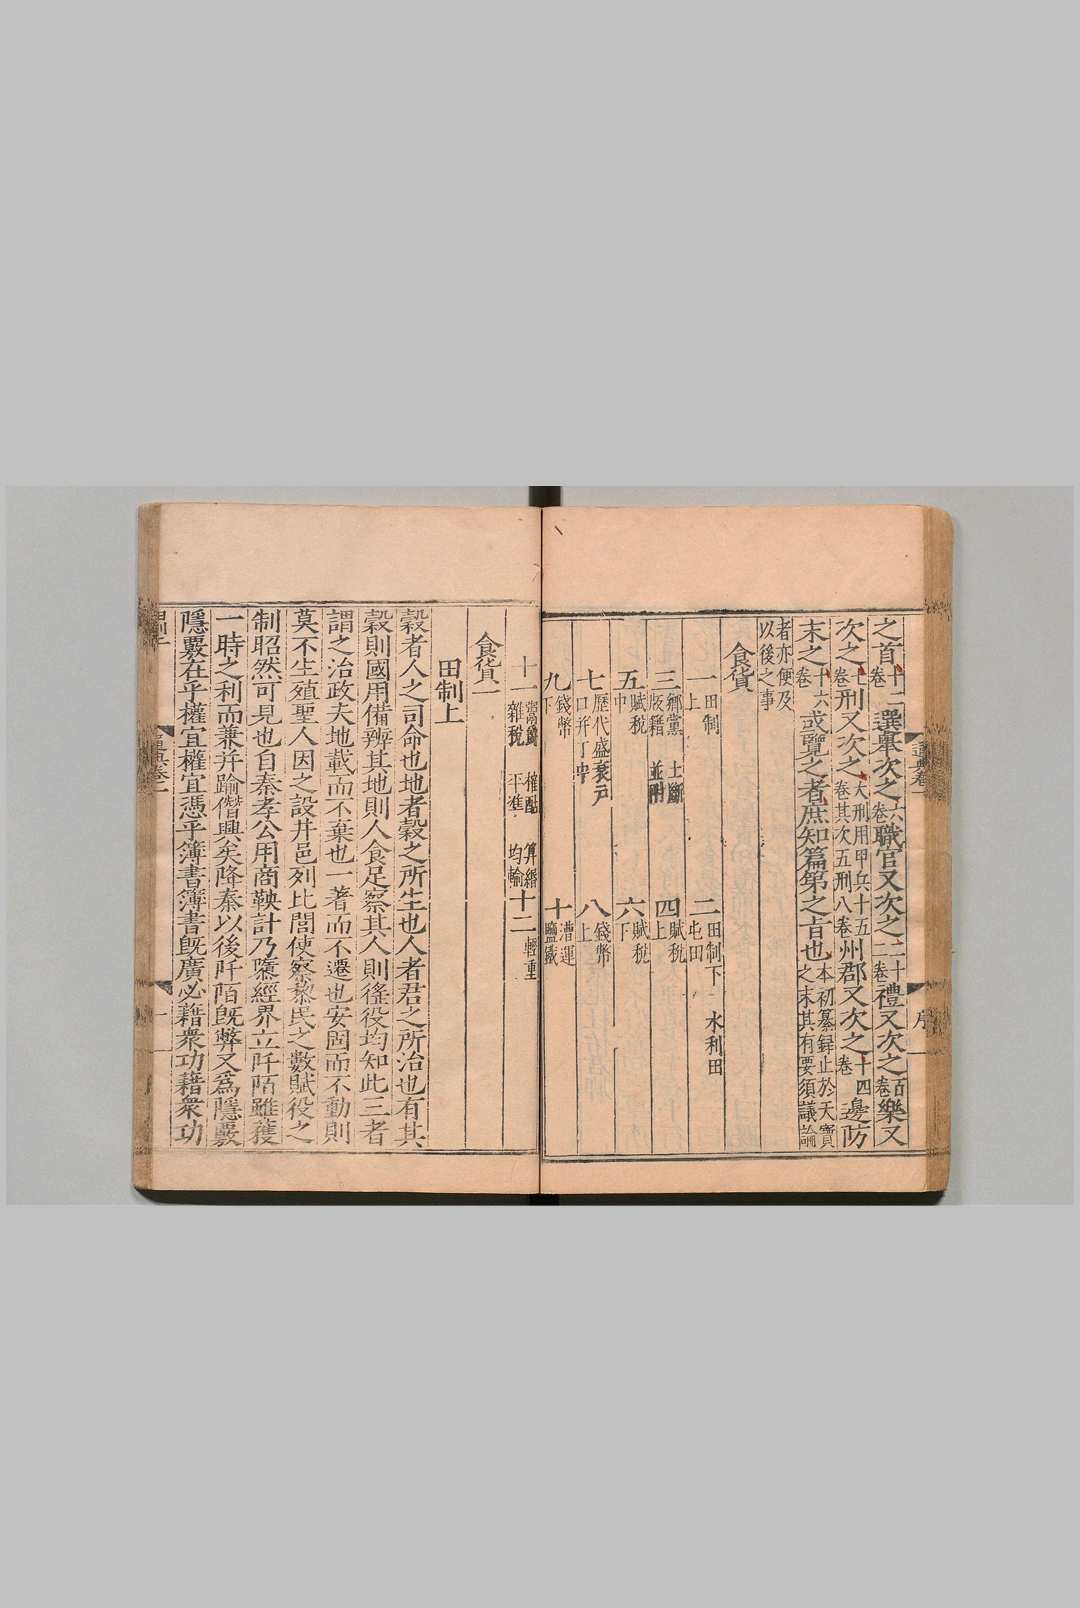 之首十二卷選舉次之六卷職官又次之二十二卷禮又次之百卷樂又
次之七卷刑又次之大刑用甲兵十五卷其次五刑八卷州郡又次之十四卷邊防
末之十六卷或覽之者庶知篇第之旨也本初纂錄止於天寶之末其有要須議論
者亦便及以後之事
食貨
一田制上 二田制下 水利田 屯田
三鄉黨 土斷 版籍 並附 四賦稅上
五賦稅中 六賦稅下
七歷代盛衰戶口并丁中 八錢幣上
九錢幣下 十漕運 鹽鐵
十一鬻爵 榷酤 算緡 雜稅 平準 均輸 十二輕重
食貨一
田制上
穀者人之司命也地者穀之所生也人者君之所治也有其
穀則國用備辨其地則人食足察其人則徭役均知此三者
謂之治政夫地載而不棄也一著而不遷也安固而不動則
莫不生殖聖人因之設井邑列比閭使察黎民之數賦役之
制昭然可見也自秦孝公用商鞅計乃隳經界立阡陌雖獲
一時之利而兼并踰僭興矣降秦以後阡陌旣弊又爲隱覈
隱覈在乎權宜權宜憑乎簿書簿書旣廣必藉衆功藉衆功
通典卷一
序
通典卷一
一